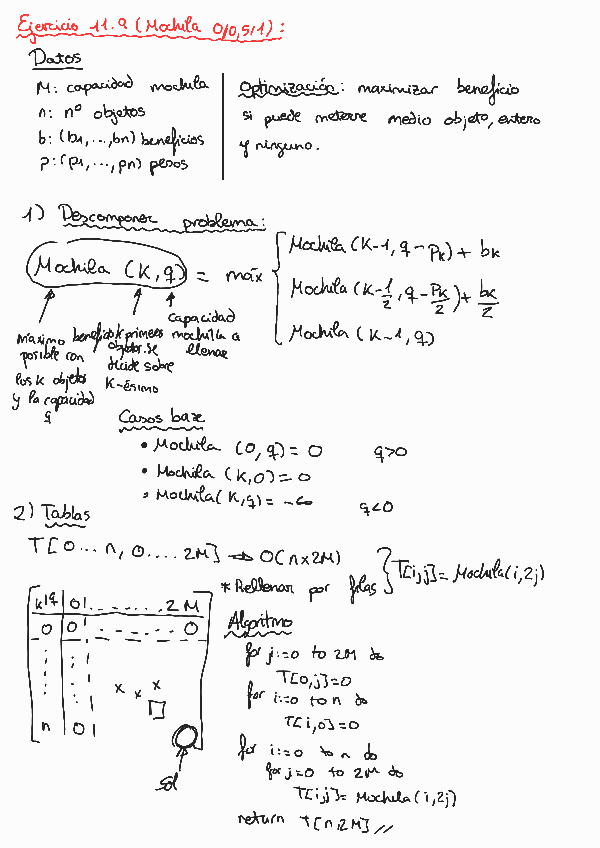 Ejercicio 11.9 (Mochila 0/0,5/1):
Datos
M: capacidad mochila
n: nº objetos
b: (b1, ..., bn) beneficios
p: (p1, ..., pn) pesos
Optimización: maximizar beneficio
si puede meterse medio objeto, entero
y ninguno.
1) Descomponer problema:
Mochila (K, q) = máx
Mochila (K-1, q - PK) + bK
Mochila (K-1/2, q - PK/2) + bK/2
Mochila (K-1, q)
máximo beneficio
posible con
los K objetos
y la capacidad
q
K primeros
objetos. Se
decide sobre
K-ésimo
capacidad
mochila a
llenar
Casos base
• Mochila (0, q) = 0 q>0
• Mochila (K, 0) = 0
• Mochila (K, q) = -∞ q<0
2) Tablas
T[0...n, 0....2M] ⇒ O(n×2M)
* Rellenar por filas } T[i,j] = Mochila(i, 2j)
K\q 0 1 ........ 2M
0 0 ........ 0
n 0
x x x
sol
Algoritmo
for j:=0 to 2M do
T[0,j]=0
for i:=0 to n do
T[i,0]=0
for i:=0 to n do
for j=0 to 2M do
T[i,j]= Mochila (i, 2j)
return T[n,2M] //